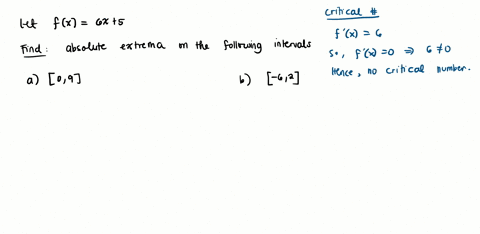 Let f(x) = 6x+5
Find: absolute extrema on the following intervals
a) [0,9]
b) [-6,2]
Critical #
f'(x) = 6
So, f'(x) = 0 ⇒ 6 ≠ 0
Hence, no critical number.